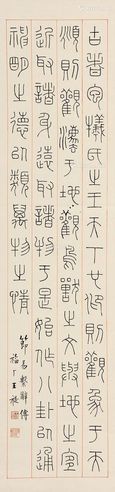 古者犧氏之王天下也仰則觀象于天
頫則觀灋于地觀鳥獸之文與地之宜
近取諸身遠取諸物于是始作八卦以通
神明之德以類萬物之情
節易繫辭傳
福厂王禔